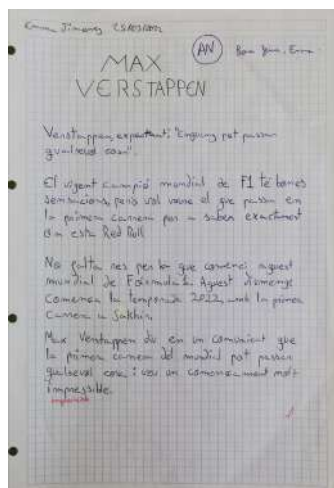 Emma Jimenez
AN
Bon Jour, Emma
MAX
VERSTAPPEN
Verstappen, expectant: "Enguany pot passar
qualsevol cosa".
El vigent campió mundial de F1 té bones
sensacions, però vol veure el que passa en
la primera carrera per a saber exactament
on està Red Bull
No falta res per la que comenci aquest
mundial de Fórmula 1. Aquest diumenge
Comença la temporada 2022, amb la primera
Carrera a Sakhir.
Max Verstappen diu en un comunicat que
la primera carrera del mundial pot passar
qualsevol cosa i veu un començament molt
impressible.